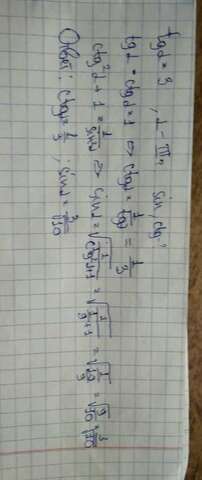 tgα = 3 , α - III ч sin, ctg?
tgα * ctgα = 1 ⇔ ctgα = 1/tgα = 1/3
ctg²α + 1 = 1/sin²α ⇔ sinα = √(1/(ctg²α+1)) = √(1/(1/9+1)) = √(1/(10/9)) = √(9/10) = 3/√10
Ответ: ctgα = 1/3 ; sinα = 3/√10